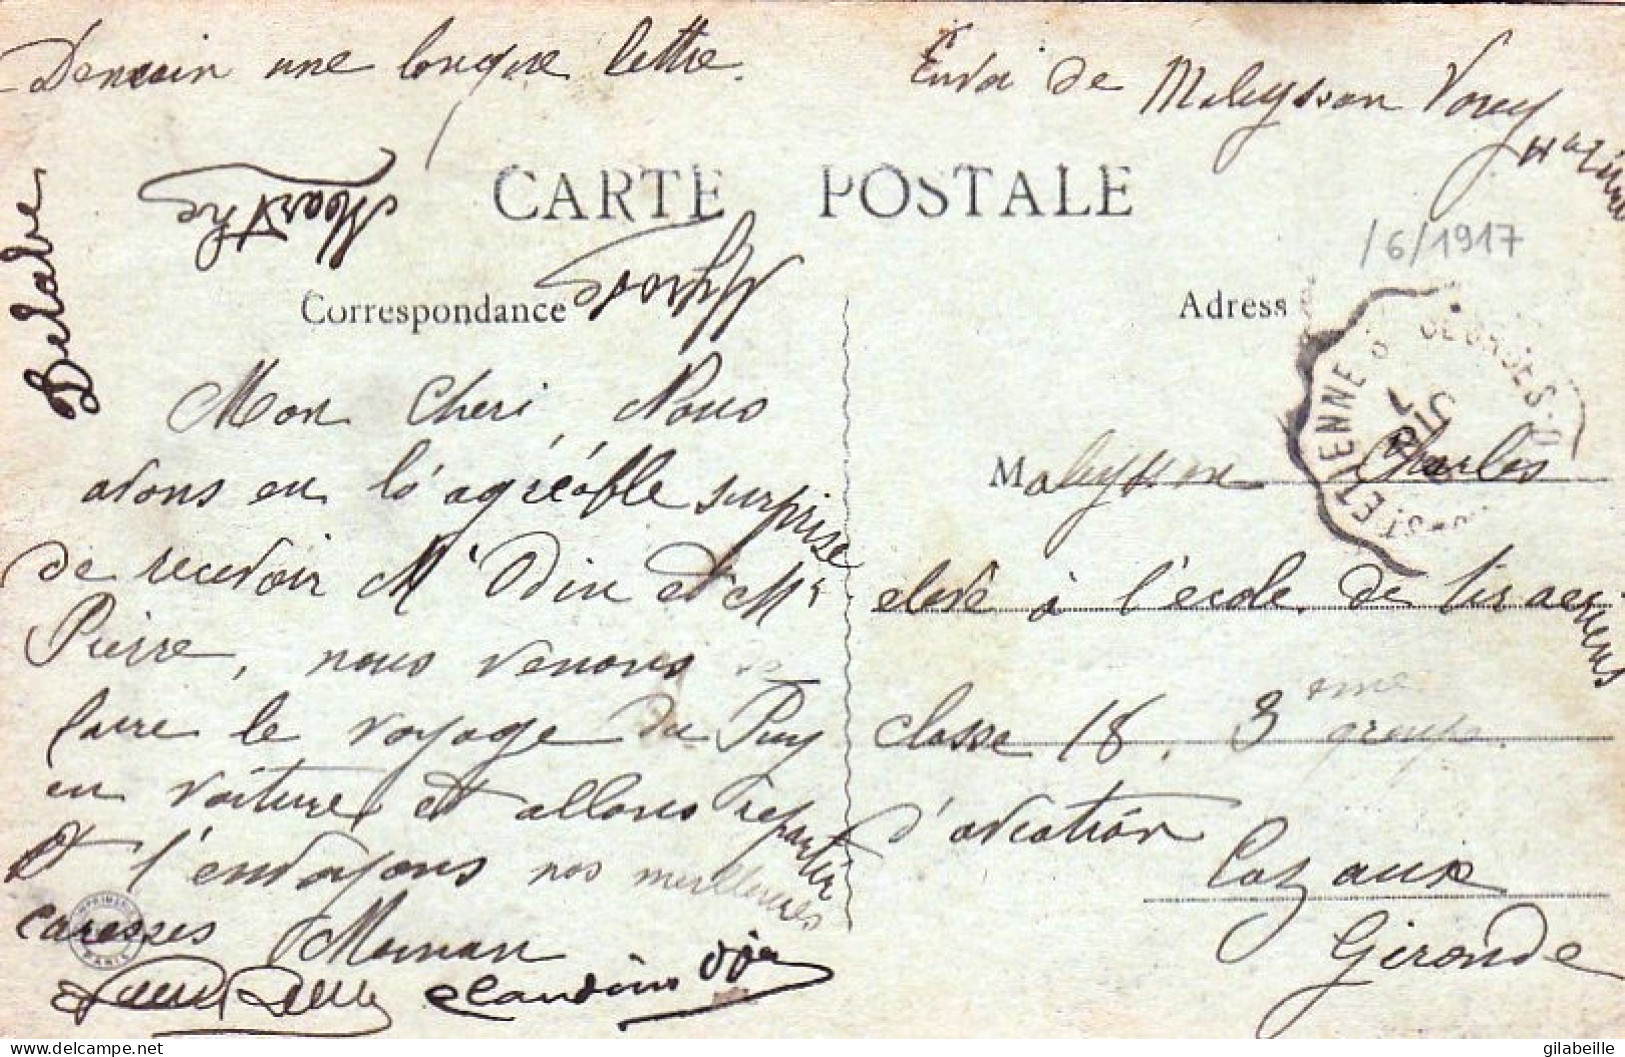 Demain une longue lettre.
Envoi de Maleysson Vorey
Hte Loire
CARTE POSTALE
Marthe
Belabre
/6/1917
Correspondance
Adresse
ST ETIENNE
Mon Cheri Nous
avons eu l'agréable surprise
de recevoir Mr Odin et Mr
Pierre, nous venons de
faire le voyage du Puy
en voiture et allons repartir
Et t'envoyons nos meilleures
caresses Maman
Claudius
Maleysson Charles
eleve à l'école de tir aeriens
classe 18. 3eme groupe
d'aviation
Cazaux
Gironde
PARIS
delcampe.net
gilabeille